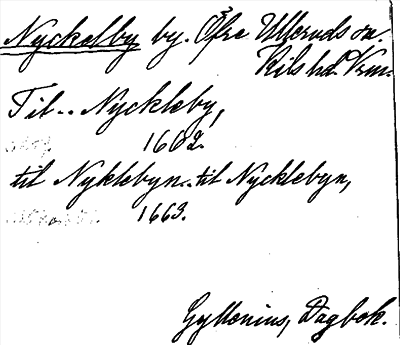 Nyckelby by. Öfre Ulleruds sn.
Kils hd. Vrm.
Till.. Nyckleby,
1662.
till Nyklebyn..till Nycklebyn,
1663.
Gyllenius, Dagbok.